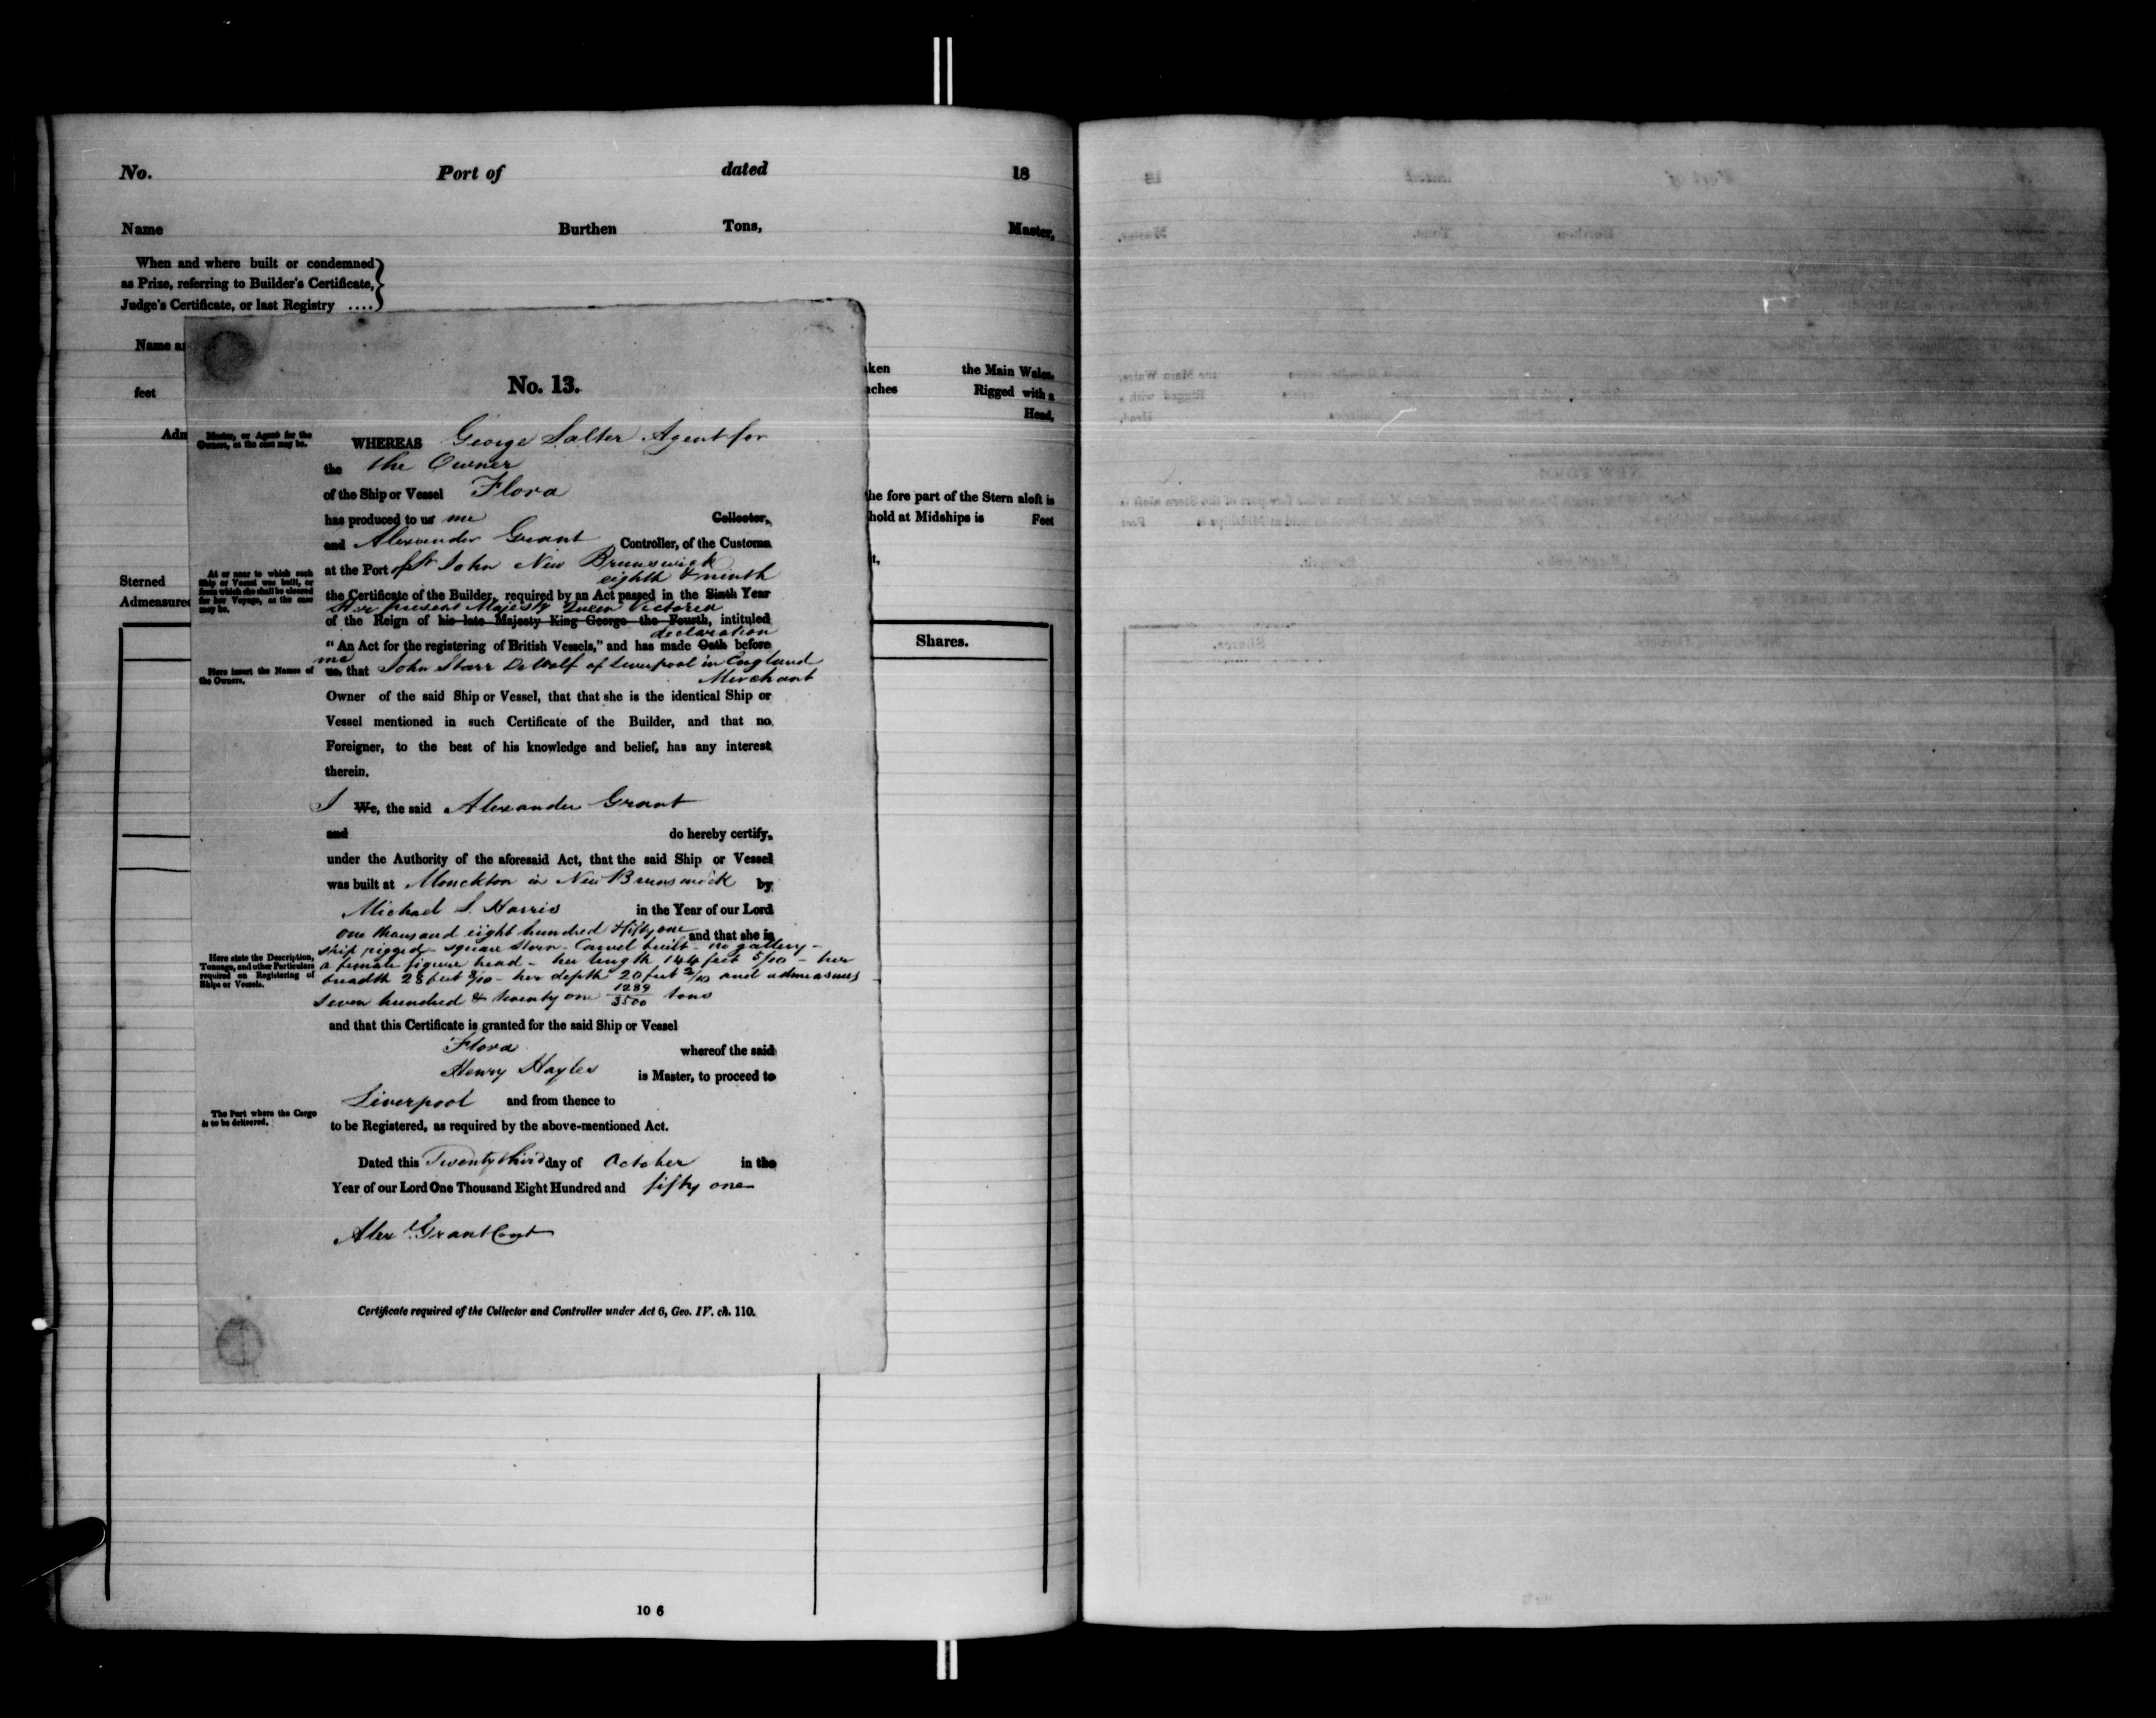 No. Port of dated 18
Name Burthen Tons, Master,
When and where built or condemned
as Prize, referring to Builder's Certificate,
Judge's Certificate, or last Registry ....
Name
feet
ken the Main Wales.
ches Rigged with a
Head,
he fore part of the Stern aloft is
hold at Midships is Feet
t,
Sterned
Admeasured
Shares.
No. 13.
Master, or Agent for the
Owner, as the case may be.
WHEREAS George Salter Agent for
the the Owner
of the Ship or Vessel Flora
has produced to us me Collector,
and Alexander Grant Controller, of the Customs
at the Port of St John New Brunswick
At or near to which such
Ship or Vessel was built, or
from which she shall be cleared
for her Voyage, as the case
may be.
eighth & ninth
the Certificate of the Builder, required by an Act passed in the Sixth Year
Her present Majesty Queen Victoria
of the Reign of his late Majesty King George the Fourth, intituled
declaration
"An Act for the registering of British Vessels," and has made Oath before
me
us, that John Starr DeWolf of Liverpool in England
Merchant
Here insert the Names of
the Owners.
Owner of the said Ship or Vessel, that that she is the identical Ship or
Vessel mentioned in such Certificate of the Builder, and that no
Foreigner, to the best of his knowledge and belief, has any interest
therein.
I We, the said Alexander Grant
and do hereby certify,
under the Authority of the aforesaid Act, that the said Ship or Vessel
was built at Monckton in New Brunswick by
Michael S. Harris in the Year of our Lord
One thousand eight hundred & fifty one and that she is
ship rigged - square stern - Carvel built - no gallery -
a female figure head - her length 144 feet 5/10 - her
breadth 28 feet 8/10 - her depth 20 feet 2/10 and admeasures
seven hundred & twenty one 1289/3500 tons
Here state the Description,
Tonnage, and other Particulars
required on Registering of
Ships or Vessels.
and that this Certificate is granted for the said Ship or Vessel
Flora whereof the said
Henry Hayles is Master, to proceed to
Liverpool and from thence to
The Port where the Cargo
is to be delivered.
to be Registered, as required by the above-mentioned Act.
Dated this Twenty third day of October in the
Year of our Lord One Thousand Eight Hundred and fifty one
Alexr. Grant Cont
Certificate required of the Collector and Controller under Act 6, Geo. IV. ch. 110.
10 6